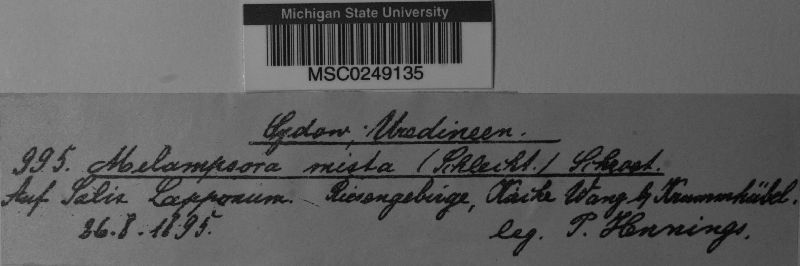 Michigan State University
MSC0249135
Sydow, Uredineen.
995. Melampsora mixta (Schlecht.) Schroet.
Auf Salix Lapponum. Riesengebirge, Kirche Wang b/ Krummhübel.
26.8.1895. leg. P. Hennings.